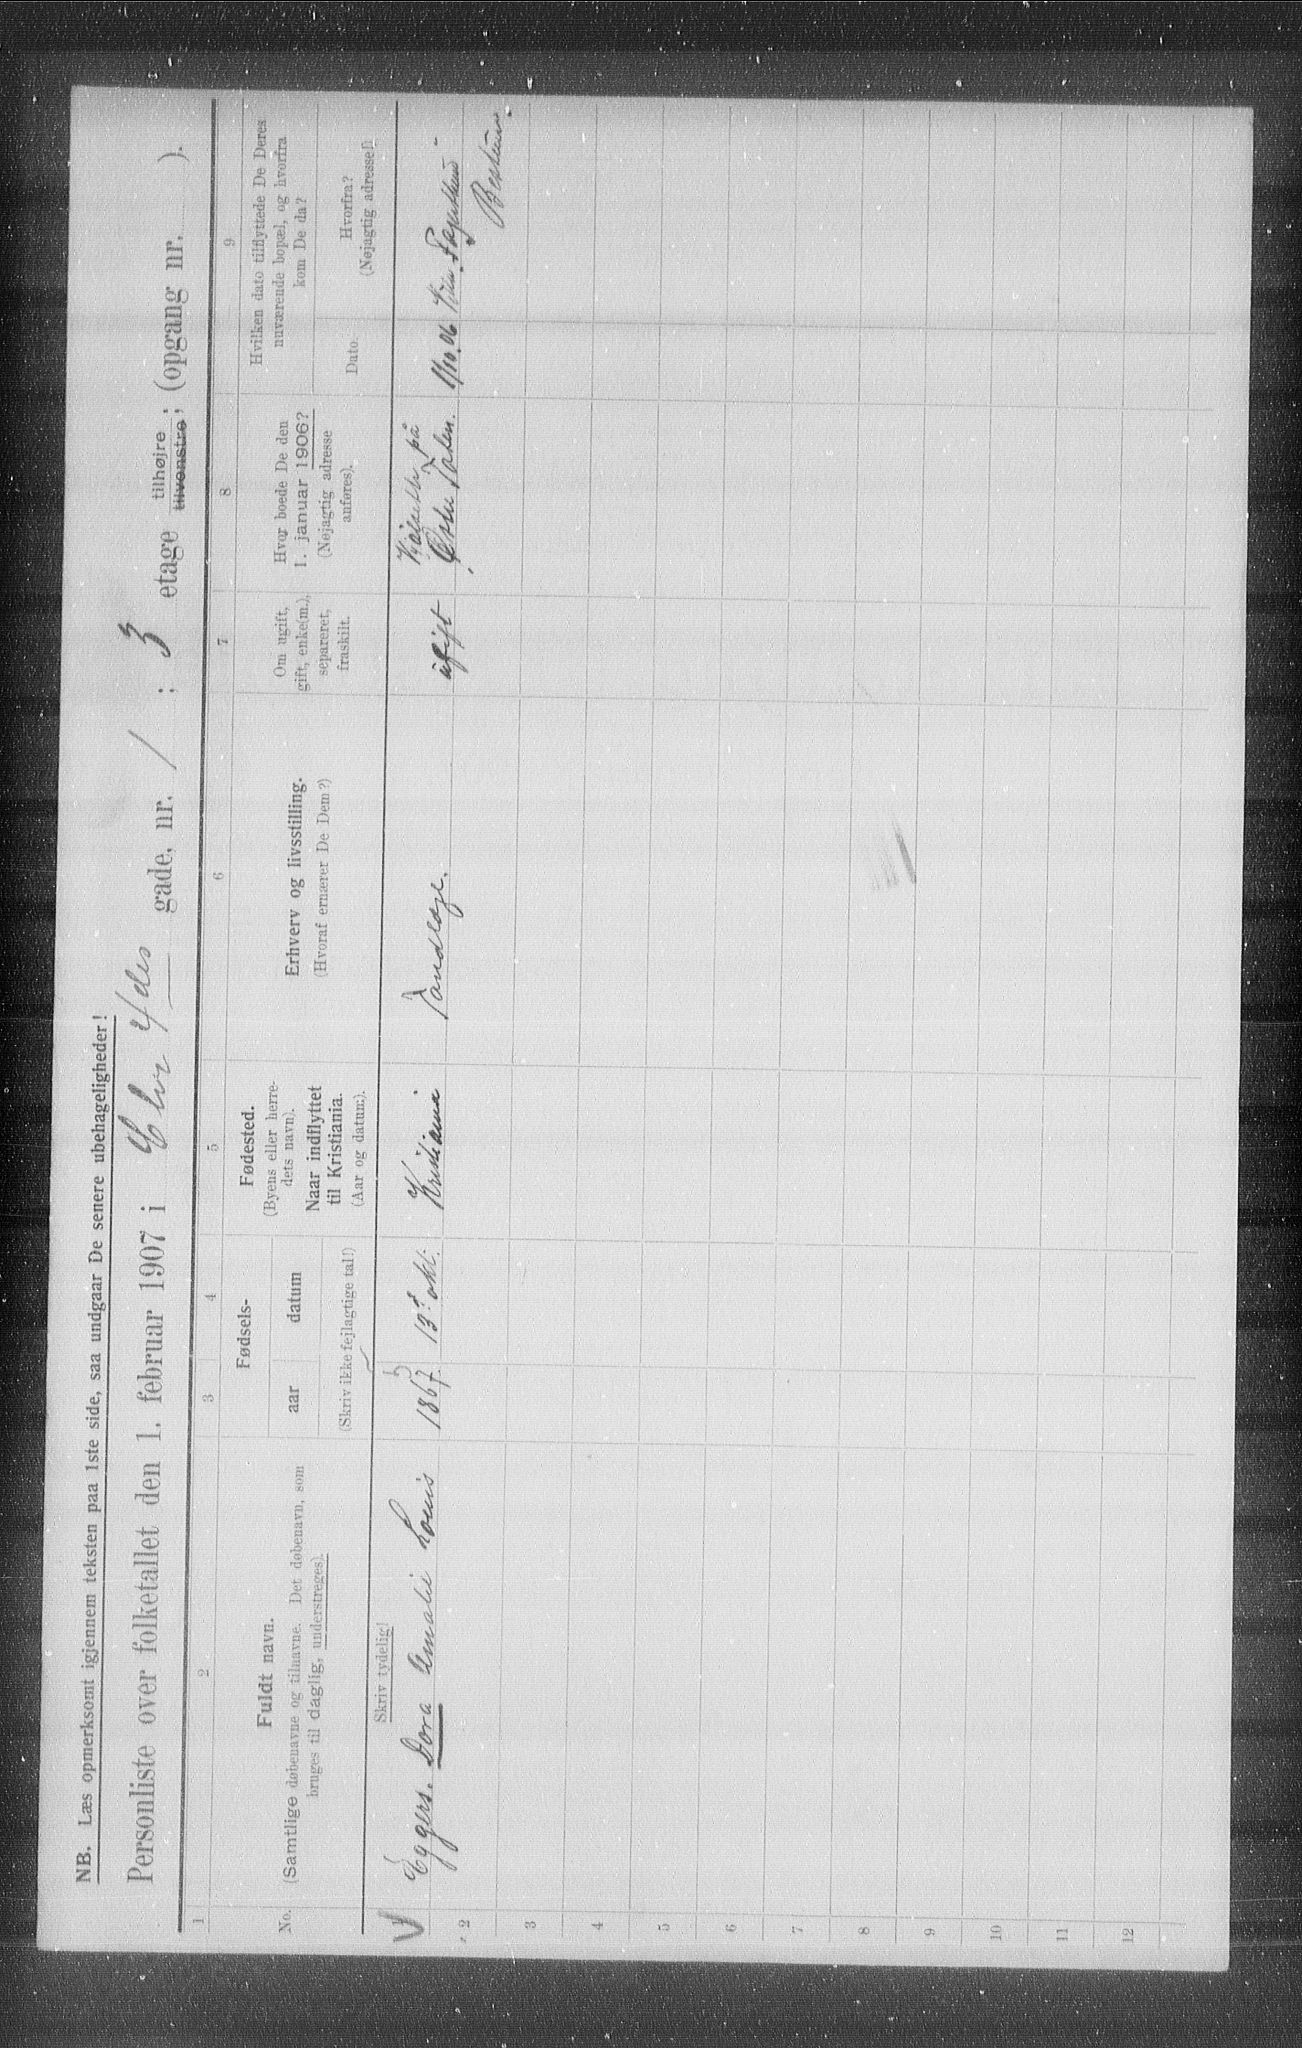 NB. Læs opmerksomt igjennem teksten paa 1ste side, saa undgaar De senere ubehageligheder!
Personliste over folketallet den 1. februar 1907 i Chr. 4des gade, nr. 1; 3 etage tilhøjre; tilvenstre; (opgang nr. ).
1 2 3 4 5 6 7 8 9
No.
Fuldt navn.
(Samtlige døbenavne og tilnavne. Det døbenavn, som
bruges til daglig, understreges).
Skriv tydelig!
Fødsels-
aar datum
(Skriv ikke fejlagtige tal!)
Fødested.
(Byens eller herre-
dets navn).
Naar indflyttet
til Kristiania.
(Aar og datum).
Erhverv og livsstilling.
(Hvoraf ernærer De Dem?)
Om ugift,
gift, enke(m.),
separeret,
fraskilt.
Hvor boede De den
1. januar 1906?
(Nøjagtig adresse
anføres).
Hvilken dato tilflyttede De Deres
nuværende bopæl, og hvorfra
kom De da?
Dato.
Hvorfra?
(Nøjagtig adresse!)
Eggers. Dora Amalie Louis 1867. 13. okt. Kristiania Tandlæge. ugift
på
Østre Toten. 1/10.06
Bestum.
2
3
4
5
6
7
8
9
10
11
12